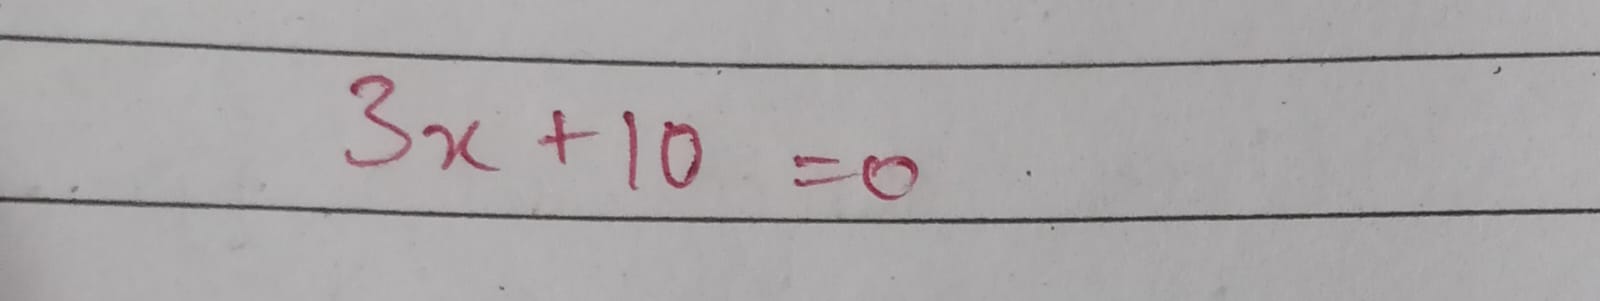 3x + 10 = 0